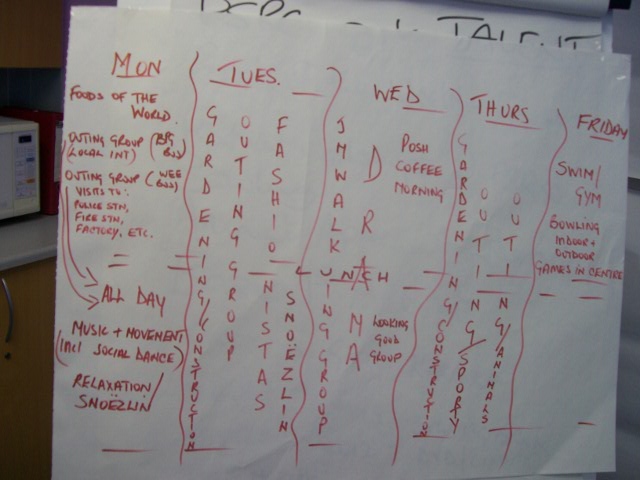 TALENT
MON
FOODS OF THE
WORLD.
OUTING GROUP (BIG
(LOCAL INT) BUS)
OUTING GROUP (WEE
VISITS TO: BUS)
POLICE STN,
FIRE STN,
FACTORY, ETC.
ALL DAY
MUSIC + MOVEMENT
(INCL SOCIAL DANCE)
RELAXATION/
SNOËZLIN
TUES.
GARDENING/CONSTRUCTION
OUTING GROUP
FASHIONISTAS
SNOËZLIN
WED
JM WALKING GROUP
DRAMA
POSH
COFFEE
MORNING
LUNCH
LOOKING
GOOD
GROUP
THURS
GARDENING/CONSTRUCTION
OUTING/SPORTY
OUTING/ANIMALS
FRIDAY
SWIM/
GYM
BOWLING
INDOOR +
OUTDOOR
GAMES IN CENTRE